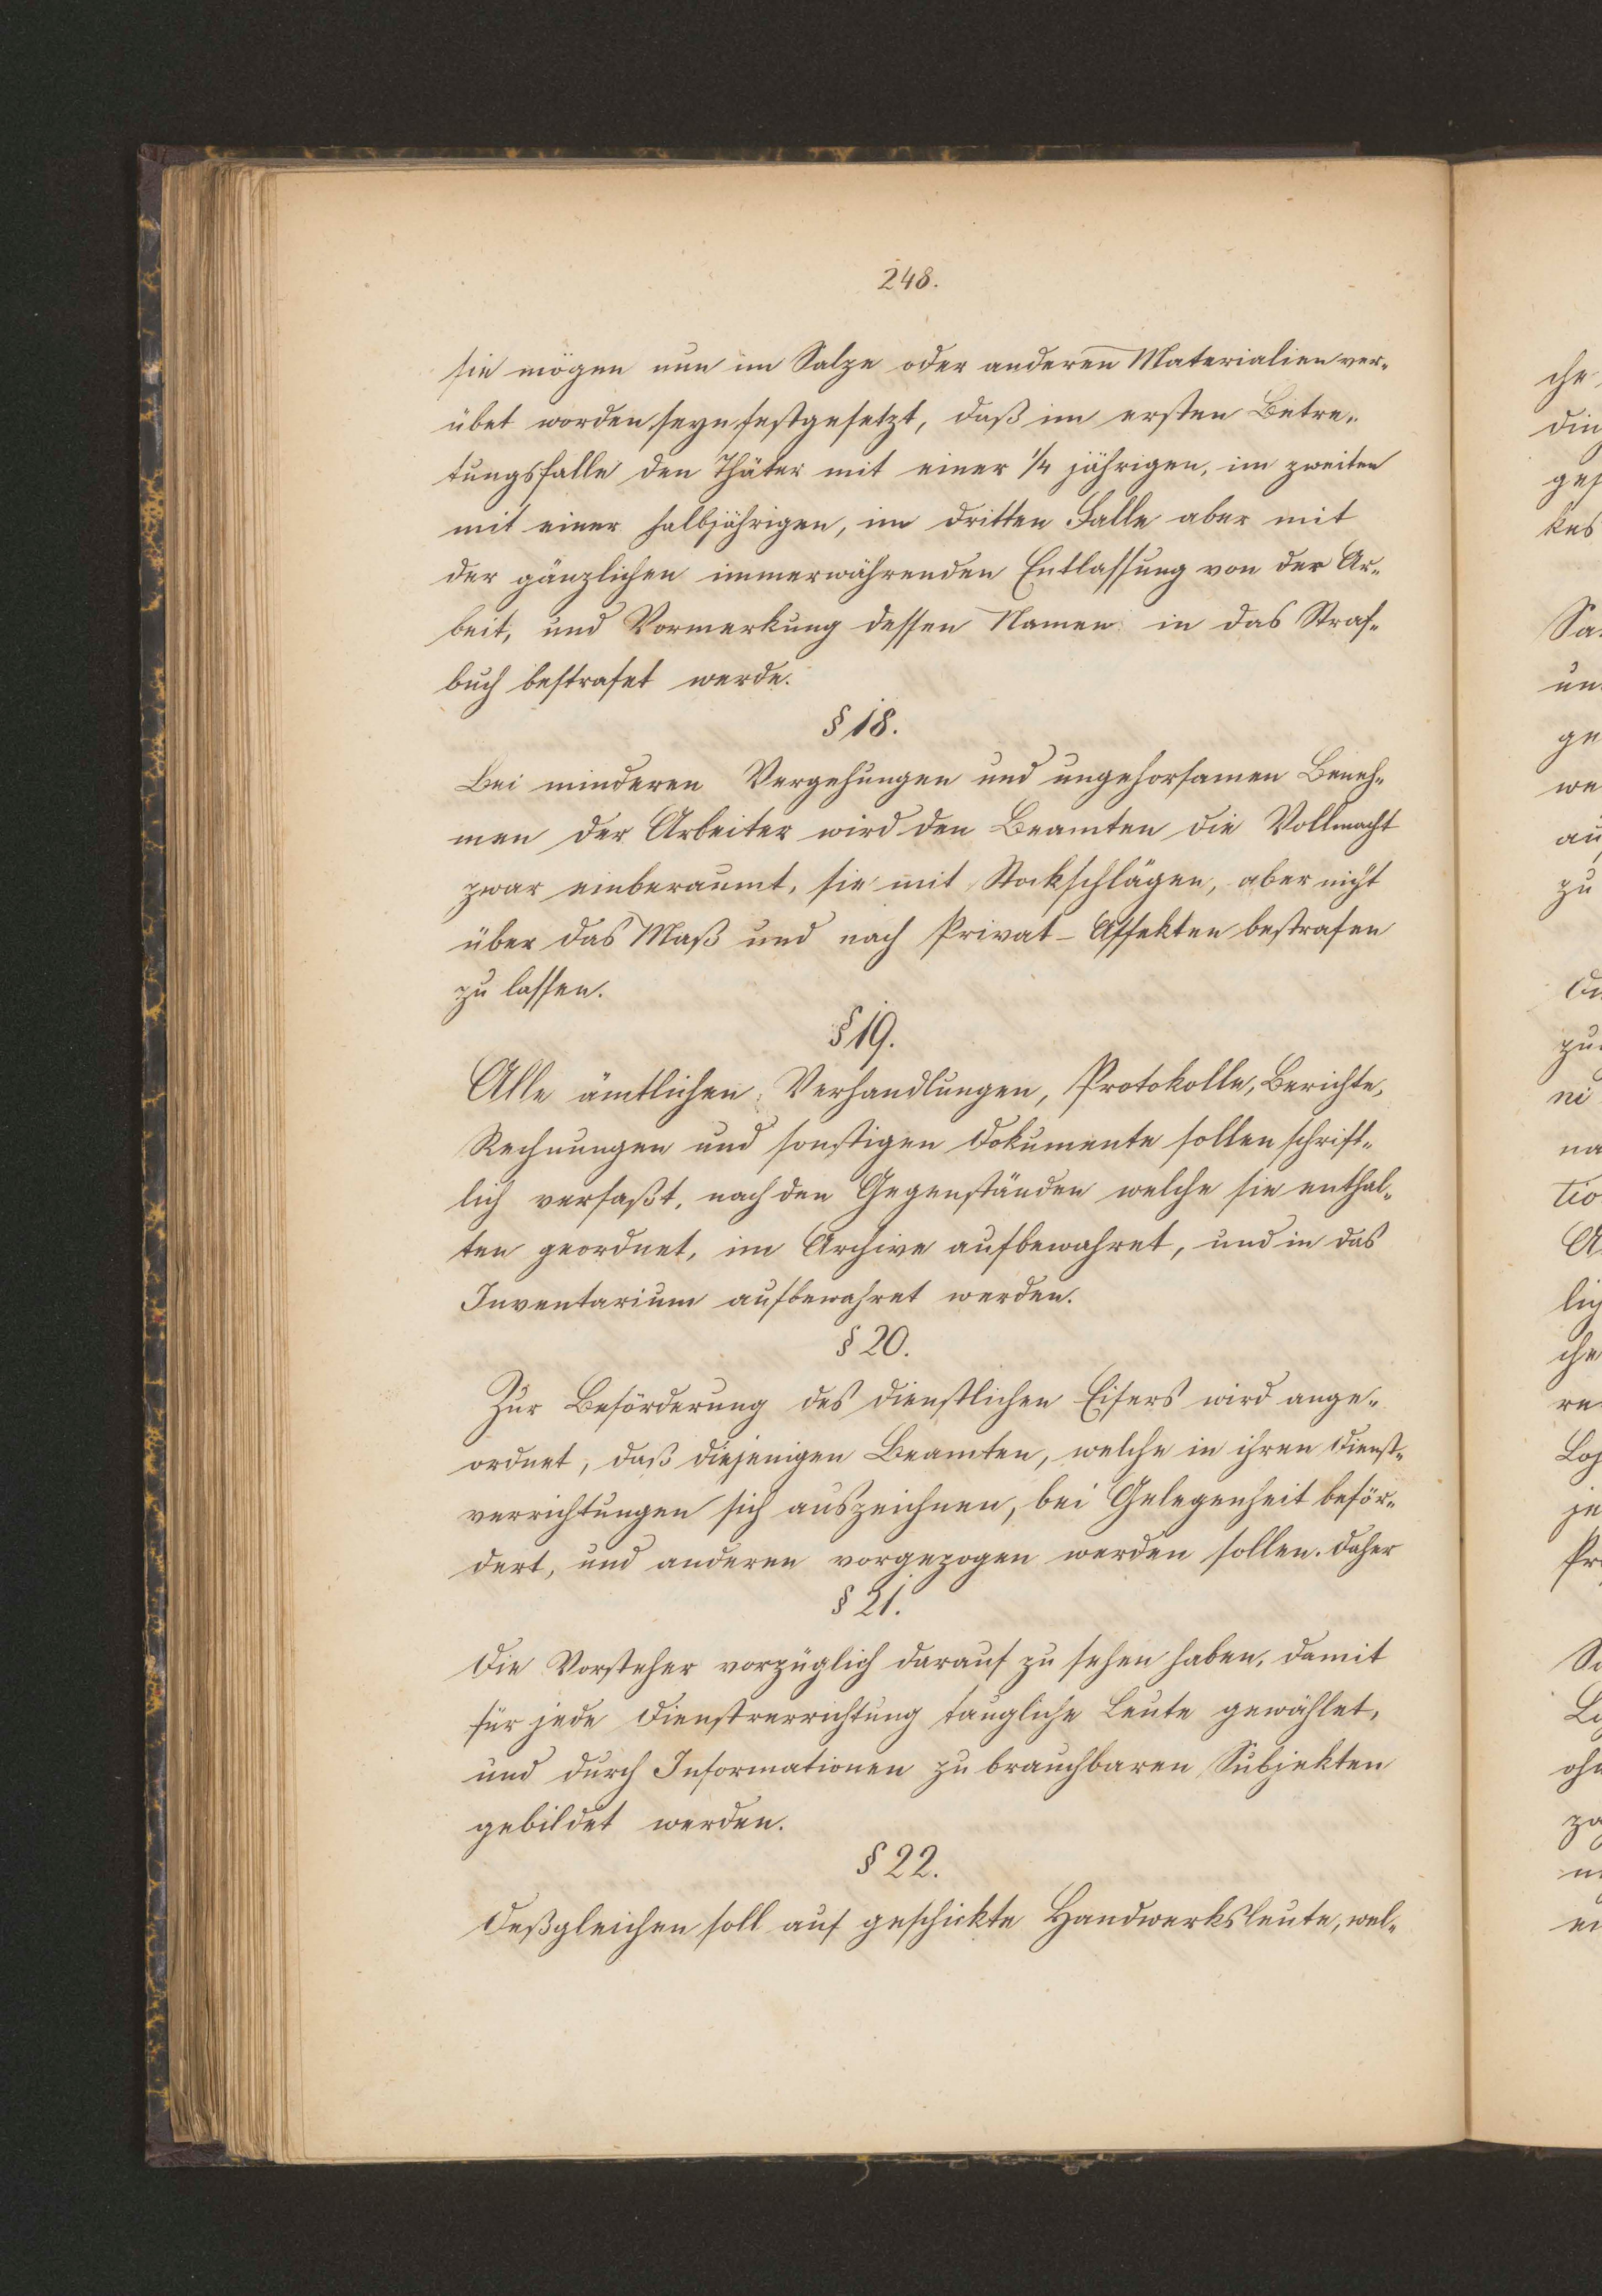 248.
sie mögen nun im Salze oder anderen Materialien ver-
übet worden seyn festgesetzt, daß im ersten Betre-
tungsfalle den Thäter mit einer 1/4 jährigen, im zweiten
mit einer halbjährigen, im dritten Falle aber mit
der gänzlichen immerwährenden Entlassung von der Ar-
beit, und Vormerkung dessen Namen in das Straf-
buch bestrafet werde.
§ 18.
Bei minderen Vergehungen und ungehorsamen Beneh-
men der Arbeiter wird den Beamten die Vollmacht
zwar einberaumt, sie mit Stockschlägen, aber nicht
über das Maß und nach Privat-Affekten bestrafen
zu lassen.
§ 19.
Alle ämtlichen Verhandlungen, Protokolle, Berichte,
Rechnungen und sonstigen Dokumente sollen schrift-
lich verfaßt, nach den Gegenständen welche sie enthal-
ten geordnet, im Archive aufbewahret, und in das
Inventarium aufbewahret werden.
§ 20.
Zur Beförderung des dienstlichen Eifers wird ange-
ordnet, daß diejenigen Beamten, welche in ihren Dienst-
verrichtungen sich auszeichnen, bei Gelegenheit beför-
dert, und anderen vorgezogen werden sollen. Daher
§ 21.
Die Vorsteher vorzüglich darauf zu sehen haben, damit
für jede Dienstverrichtung taugliche Leute gewählet,
und durch Informationen zu brauchbaren Subjekten
gebildet werden.
§ 22.
Deßgleichen soll auf geschickte Handwerksleute, wel-